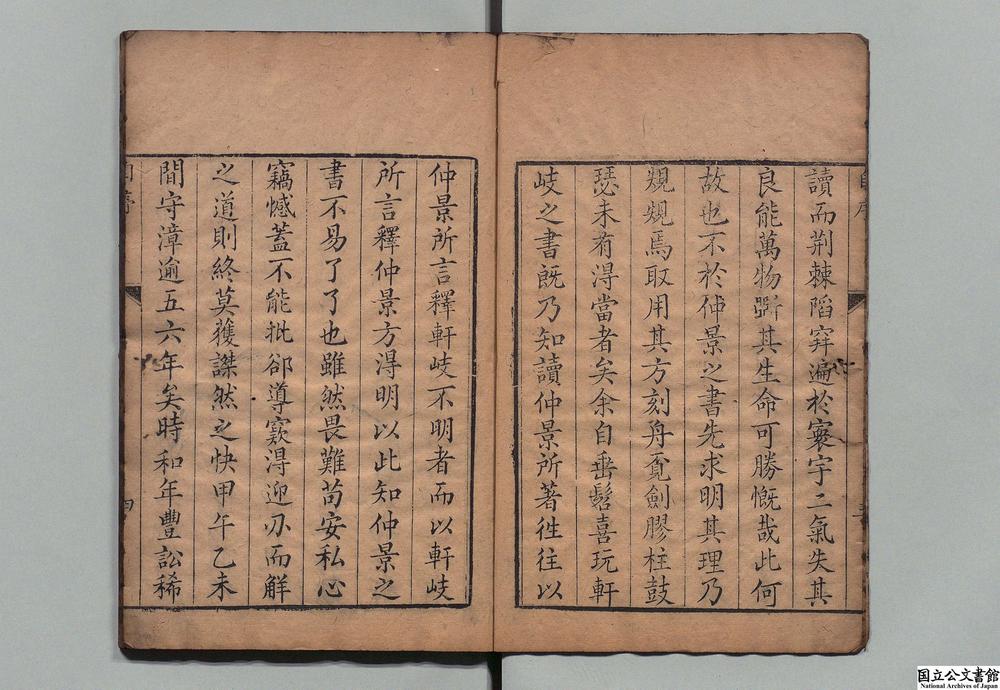 讀而荆棘陷穽遍於寰宇二氣失其
良能萬物斁其生命可勝慨哉此何
故也不於仲景之書先求明其理乃
規規焉取用其方刻舟覔劍膠柱鼓
瑟未有得當者矣余自垂髫喜玩軒
岐之書既乃知讀仲景所著徃往以
仲景所言釋軒岐不明者而以軒岐
所言釋仲景方得明以此知仲景之
書不易了了也雖然畏難苟安私心
竊憾蓋不能批郤導窾得迎刃而解
之道則終莫獲謋然之快甲午乙未
間守漳逾五六年矣時和年豐訟稀
自序
四
国立公文書館
National Archives of Japan